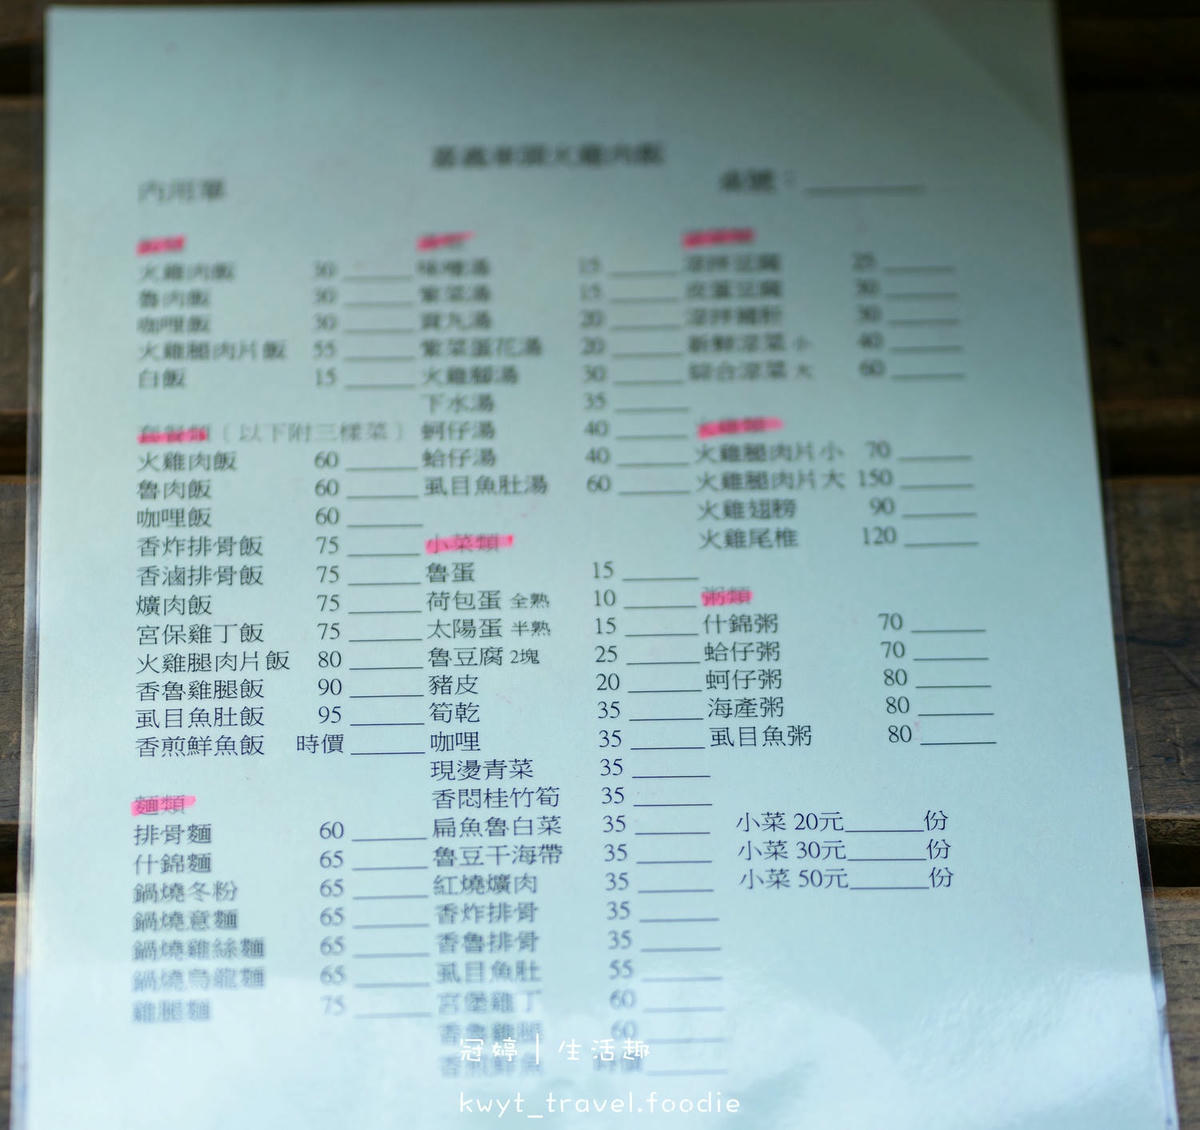 嘉義車頭火雞肉飯
內用單
桌號：______
飯類
火雞肉飯 30
魯肉飯 30
咖哩飯 30
火雞腿肉片飯 55
白飯 15
套餐類（以下附三樣菜）
火雞肉飯 60
魯肉飯 60
咖哩飯 60
香炸排骨飯 75
香滷排骨飯 75
爌肉飯 75
宮保雞丁飯 75
火雞腿肉片飯 80
香魯雞腿飯 90
虱目魚肚飯 95
香煎鮮魚飯 時價
麵類
排骨麵 60
什錦麵 65
鍋燒冬粉 65
鍋燒意麵 65
鍋燒雞絲麵 65
鍋燒烏龍麵 65
雞腿麵 75
味噌湯 15
紫菜湯 15
貢丸湯 20
紫菜蛋花湯 20
火雞腳湯 30
下水湯 35
蚵仔湯 40
蛤仔湯 40
虱目魚肚湯 60
小菜類
魯蛋 15
荷包蛋 全熟 10
太陽蛋 半熟 15
魯豆腐 2塊 25
豬皮 20
筍乾 35
咖哩 35
現燙青菜 35
香悶桂竹筍 35
扁魚魯白菜 35
魯豆干海帶 35
紅燒爌肉 35
香炸排骨 35
香魯排骨 35
虱目魚肚 55
宮堡雞丁 60
香魯雞腿 60
香煎鮮魚 時價
涼拌豆腐 25
皮蛋豆腐 30
涼拌豬肝 30
新鮮涼菜 小 40
綜合涼菜 大 60
火雞類
火雞腿肉片 小 70
火雞腿肉片 大 150
火雞翅膀 90
火雞尾椎 120
粥類
什錦粥 70
蛤仔粥 70
蚵仔粥 80
海產粥 80
虱目魚粥 80
小菜 20元______份
小菜 30元______份
小菜 50元______份
冠婷 | 生活趣
kwyt_travel.foodie